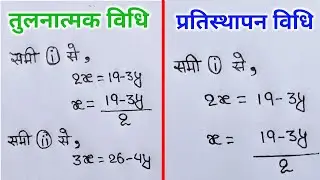 तुलनात्मक विधि
समी (i) से,
2x = 19-3y
x = 19-3y
2
समी (ii) से,
3x = 26-4y
प्रतिस्थापन विधि
समी (i) से,
2x = 19-3y
x = 19-3y
2